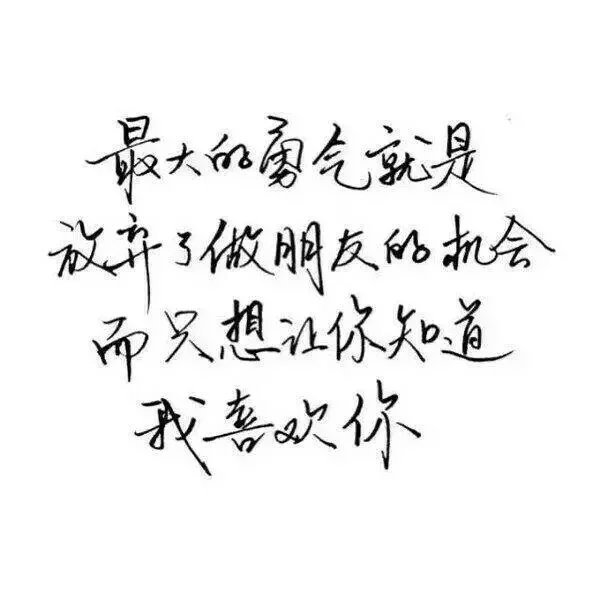 最大的勇气就是
放弃了做朋友的机会
而只想让你知道
我喜欢你